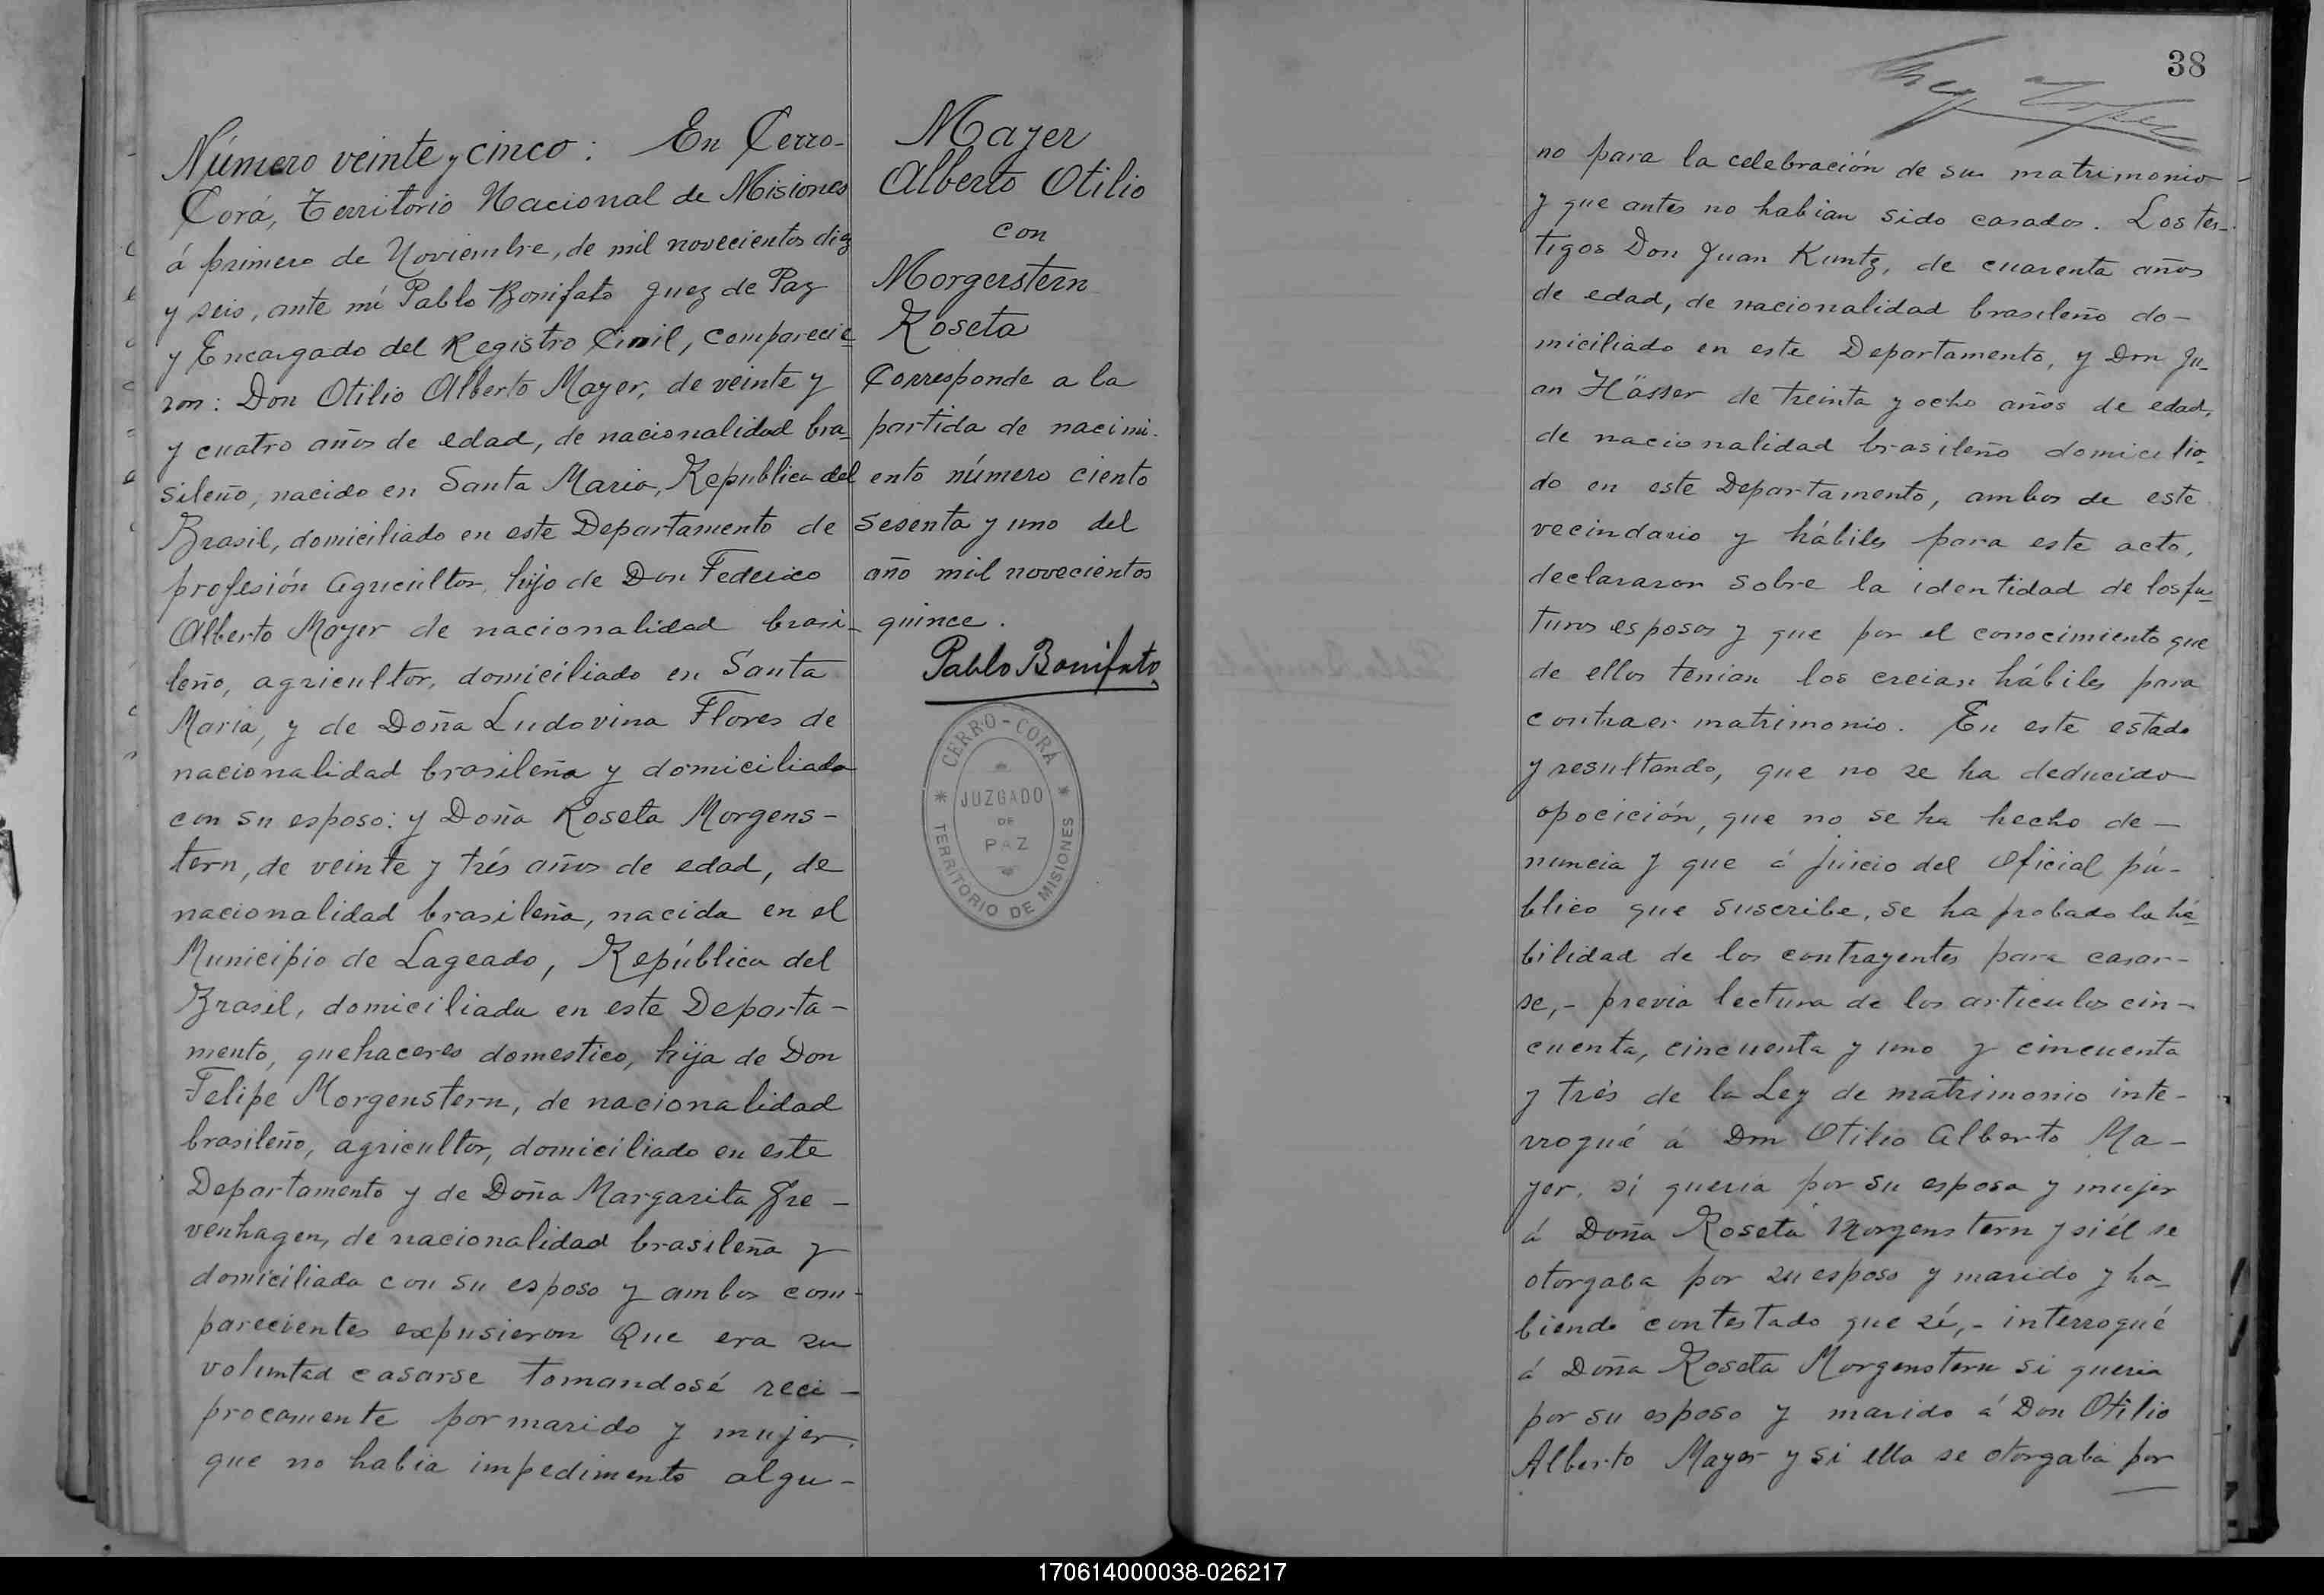 Número veinte y cinco: En Cerro-
Corá, Territorio Nacional de Misiones
á primero de Noviembre, de mil novecientos diez
y seis, ante mi Pablo Bonifato Juez de Paz
y Encargado del Registro Civil, comparecie-
ron: Don Otilio Alberto Mayer, de veinte y
y cuatro años de edad, de nacionalidad bra-
sileño, nacido en Santa Maria, Republica del
Brasil, domiciliado en este Departamento de
profesión agricultor, hijo de Don Federico
Alberto Mayer de nacionalidad brasi-
leño, agricultor, domiciliado en Santa
Maria, y de Doña Ludovina Flores de
nacionalidad brasileña y domiciliada
con su esposo: y Doña Roseta Morgens-
tern, de veinte y trés años de edad, de
nacionalidad brasileña, nacida en el
Municipio de Lageado, República del
Brasil, domiciliada en este Departa-
mento, quehaceres domestico, hija de Don
Felipe Morgenstern, de nacionalidad
brasileño, agricultor, domiciliado en este
Departamento y de Doña Margarita Gre-
venhagen, de nacionalidad brasileña y
domiciliada con su esposo y ambos com-
parecientes expusieron Que era su
voluntad casarse tomandosé reci-
procamente por marido y mujer,
que no habia impedimento algu-
Mayer
Alberto Otilio
con
Morgerstern
Roseta
Corresponde a la
partida de nacimi-
ento número ciento
sesenta y uno del
año mil novecientos
quince.
Pablo Bonifato
CERRO-CORÁ
JUZGADO
DE
PAZ
TERRITORIO DE MISIONES
38
no para la celebración de su matrimonio
y que antes no habian sido casados. Los tes-
tigos Don Juan Kuntz, de cuarenta años
de edad, de nacionalidad brasileño do-
miciliado en este Departamento, y Don Ju-
an Hässer de treinta y ocho años de edad,
de nacionalidad brasileño domicilia-
do en este Departamento, ambos de este
vecindario y hábiles para este acto,
declararon sobre la identidad de los fu-
turos esposos y que por el conocimiento que
de ellos tenian los creian hábiles para
contraer matrimonio. En este estado
y resultando, que no se ha deducido
oposición, que no se ha hecho de-
nuncia y que á juicio del Oficial pú-
blico que suscribe, se ha probado la há-
bilidad de los contrayentes para casar-
se,- previa lectura de los articulos cin-
cuenta, cincuenta y uno y cincuenta
y trés de la Ley de matrimonio inte-
rrogué á Don Otilio Alberto Ma-
yer, si queria por su esposa y mujer
á Doña Roseta Morgenstern y si él se
otorgaba por su esposo y marido y ha-
biendo contestado que sí,- interrogué
á Doña Roseta Morgenstern si queria
por su esposo y marido á Don Otilio
Alberto Mayer y si ella se otorgaba por
170614000038-026217